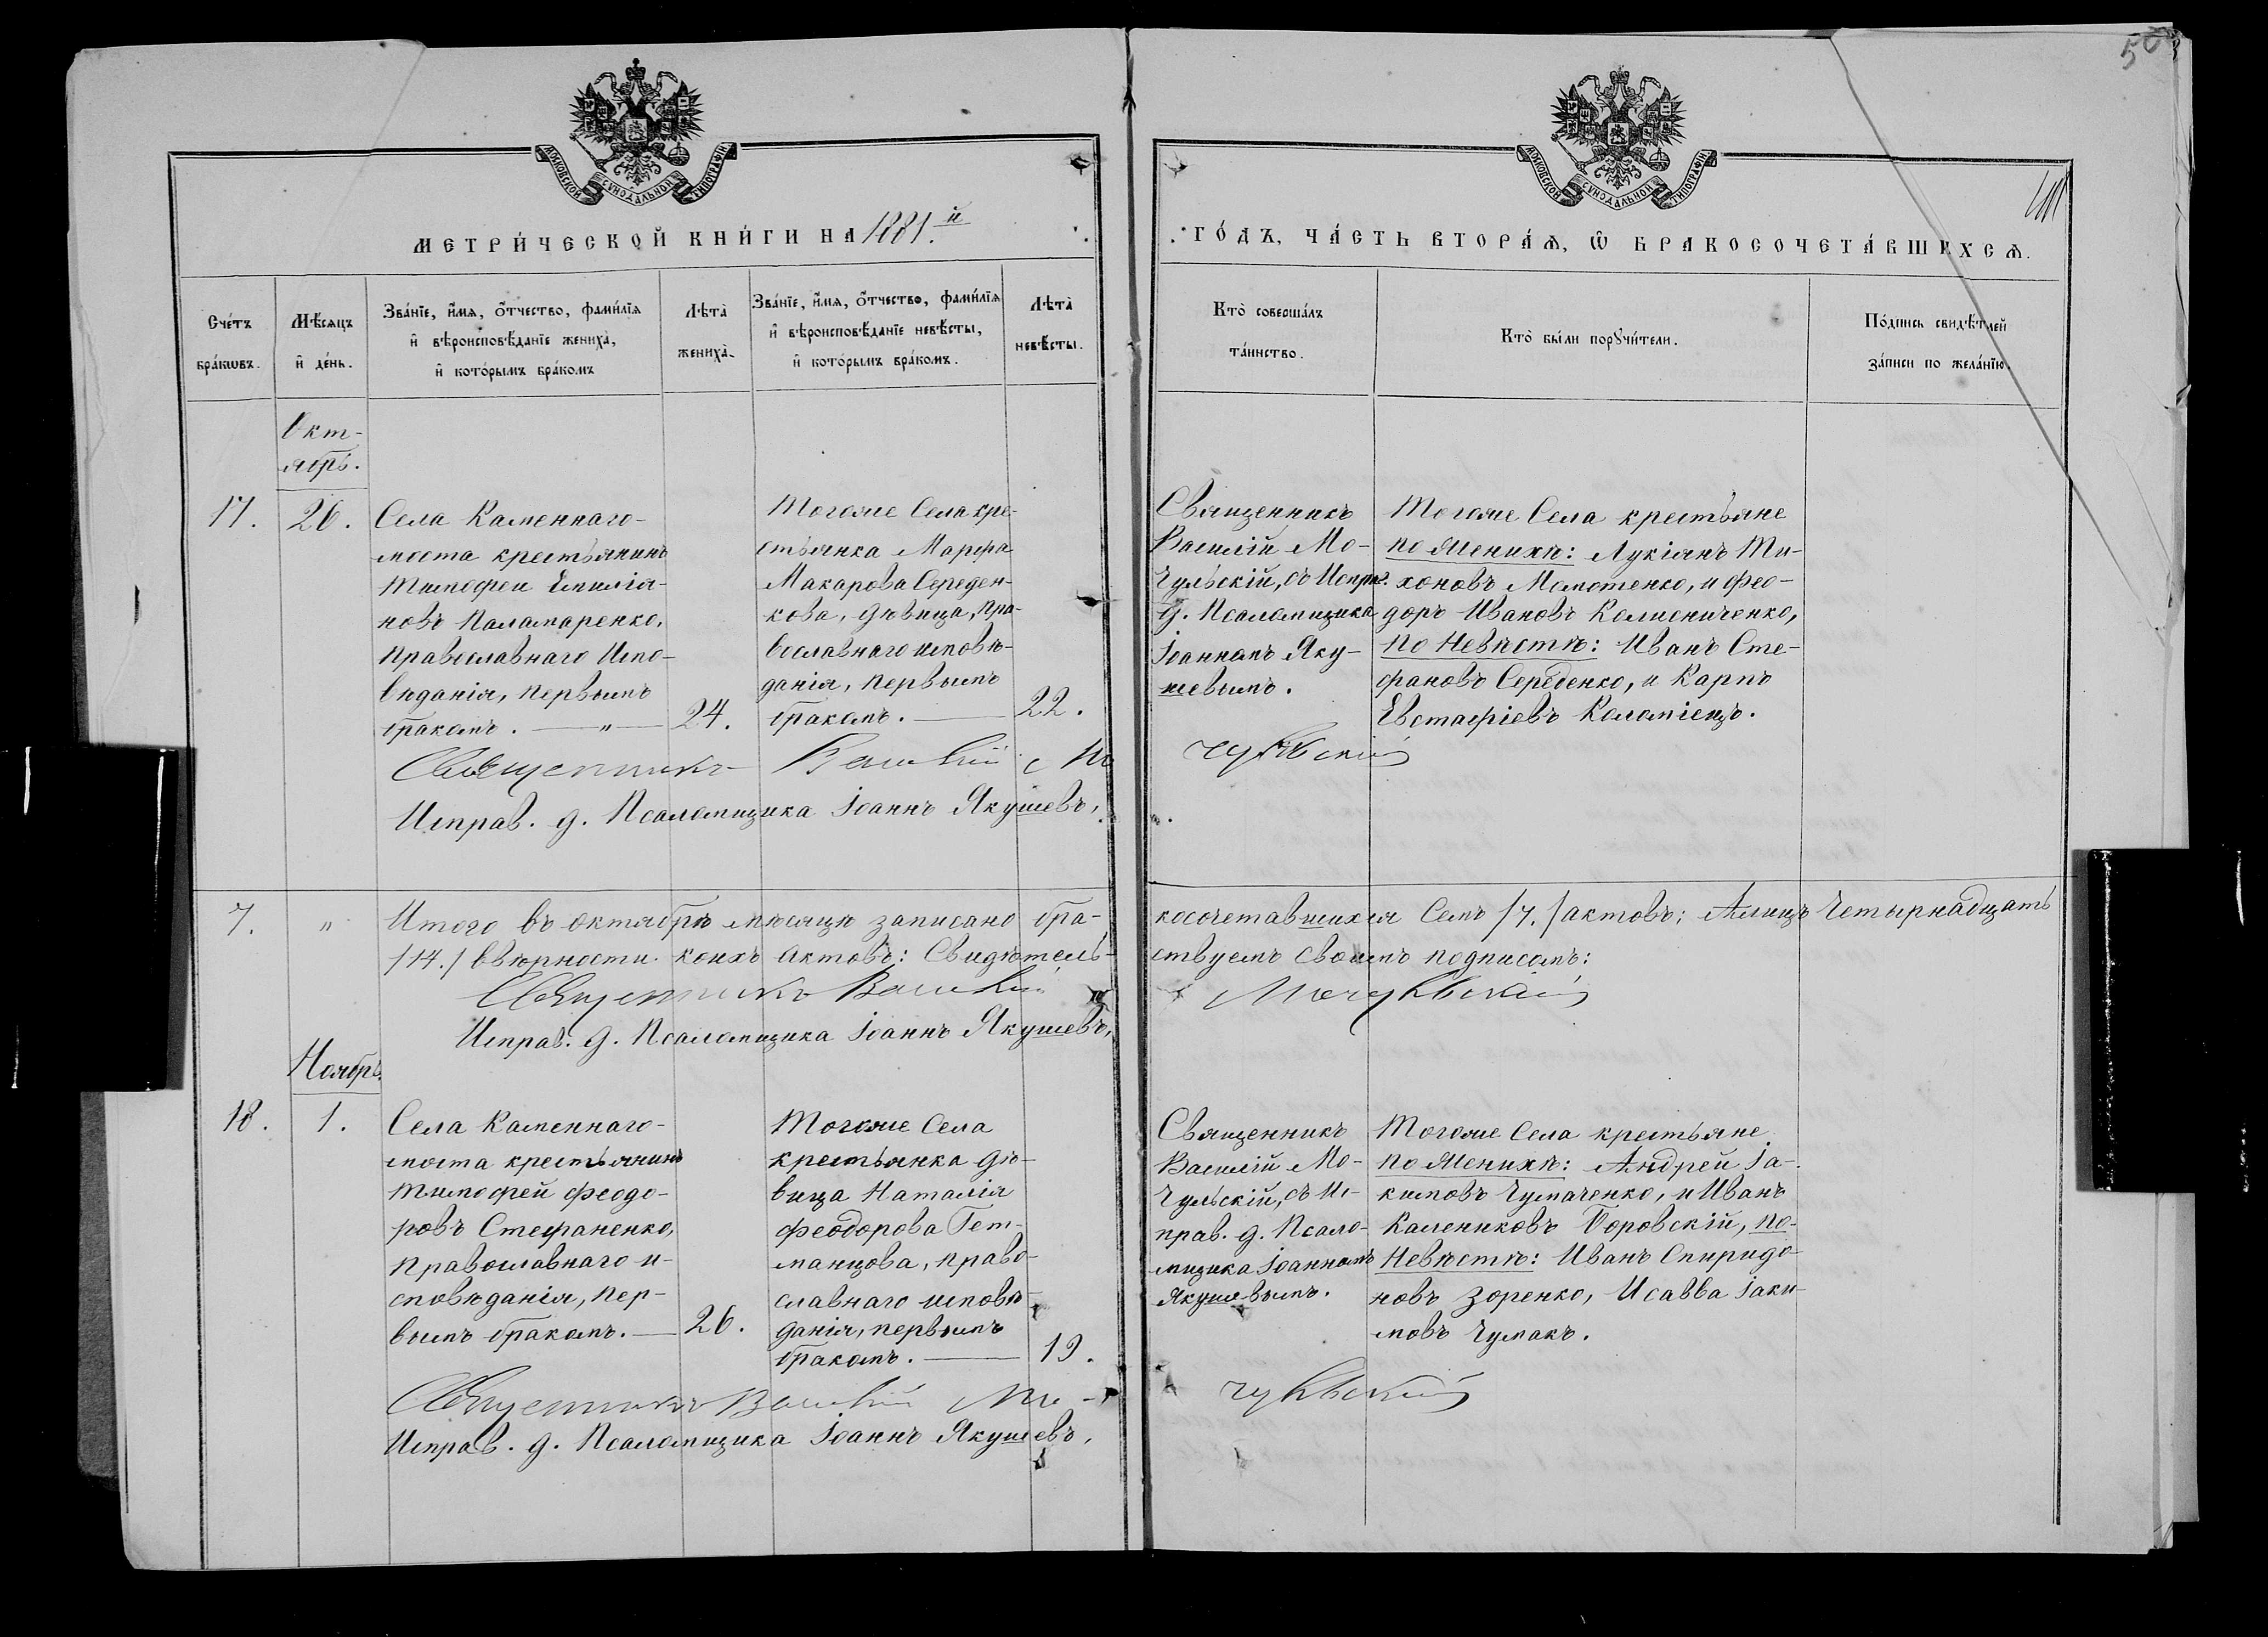 МОСКОВСКОЙ СѴНОДАЛЬНОЙ ТИПОГРАФІИ
МОСКОВСКОЙ СѴНОДАЛЬНОЙ ТИПОГРАФІИ
МЕТРИ́ЧЕСКОЙ КНИ́ГИ НА 1881.й
ГО́ДЪ, ЧА́СТЬ ВТОРА́Ѧ, Ѽ БРАКОСОЧЕТА́ВШИХСѦ.
Сче́тъ
бра́кѡвъ.
Мѣ́сяцъ
и҆ де́нь.
Зва́нїе, и҆́мѧ, ѻ҆́тчество, фами́лїѧ
и҆ вѣроисповѣ́данїе жениха̀,
и҆ кото́рымъ бра́комъ
Лѣта̀
жениха̀.
Зва́нїе, и҆́мѧ, ѻ҆́тчество, фами́лїѧ
и҆ вѣроисповѣ́данїе невѣ́сты,
и҆ кото́рымъ бра́комъ.
Лѣта̀
невѣ́сты.
Кто̀ соверша́лъ
та́инство.
Кто̀ бы́ли порꙋчи́тели.
По́дпись свидѣ́телей
за́писи по жела́нїю.
Окт-
ябрь.
17.
26.
Села Каменнаго-
моста крестьянинъ
Тимофей Емилія-
новъ Паламаренко,
православнаго Испо-
вѣданія, первымъ
бракомъ. — " —
24.
Тогоже Села кре-
стьянка Марфа
Макарова Середен-
кова, дѣвица, пра-
вославнаго исповѣ-
данія, первымъ
бракомъ. —
22.
Священникъ
Василій Мо-
чульскій, съ Исправ.
д. Псаломщика
Іоанномъ Яку-
шевымъ.
Тогоже Села крестьяне
по Женихѣ: Лукіянъ Ти-
хоновъ Мамотенко, и Фео-
доръ Ивановъ Колисниченко,
по Невѣстѣ: Иванъ Сте-
фановъ Середенко, и Карпъ
Евстафіевъ Коломіецъ.
Священникъ Василій Мо
чульскій
Исправ. д. Псаломщика Іоаннъ Якушевъ,
7. "
Итого въ октябрѣ мѣсяцѣ записано бра-
косочетавшихся Семь /7./ актовъ; Алицъ Четырнадцать
/14./ ввѣрности коихъ актовъ: Свидѣтель-
ствуемъ своимъ подписомъ:
Священникъ Василій
Мочульскій
Исправ. д. Псаломщика Іоаннъ Якушевъ,
Ноябрь.
18.
1.
Села Каменнаго-
моста крестьянинъ
Тимофей Феодо-
ровъ Стефаненко,
православнаго и-
сповѣданія, пер-
вымъ бракомъ. —
26.
Тогоже Села
крестьянка дѣ-
вица Наталія
Феодорова Гет-
манцова, право-
славнаго исповѣ-
данія, первымъ
бракомъ. —
19.
Священникъ
Василій Мо-
чульскій, съ Ис-
прав. д. Псало-
мщика Іоанномъ
Якушевымъ.
Тогоже Села крестьяне
по Женихѣ: Андрей Іа-
кимовъ Чумаченко, и Иванъ
Калениковъ Боровскій, по-
Невѣстѣ: Иванъ Спиридо-
новъ Зоренко, Исавва Іаки-
мовъ Чумакъ.
Священникъ Василій Мо-
чульскій
Исправ. д. Псаломщика Іоаннъ Якушевъ,